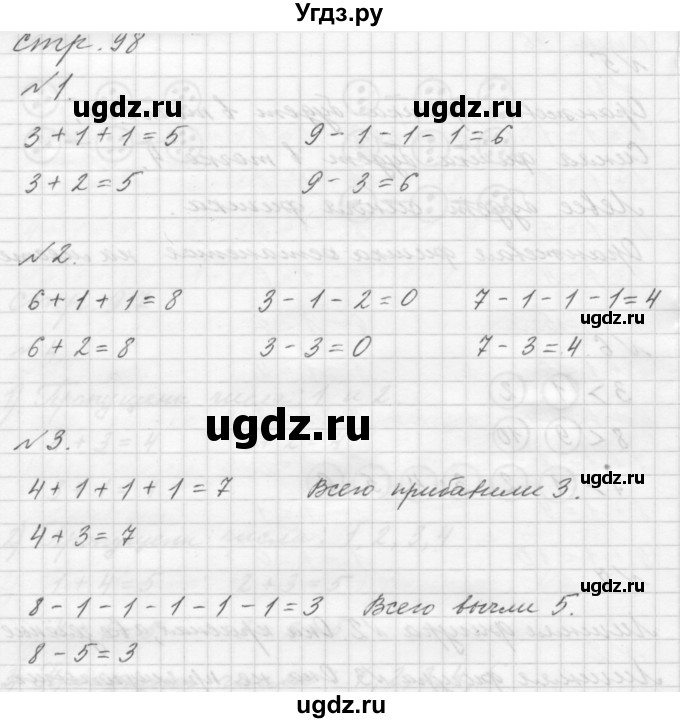 Угдз.ру
стр. 98
№1.
ugdz.ru ugdz.ru
3+1+1=5 9-1-1-1=6
3+2=5 9-3=6
№2.
6+1+1=8 3-1-2=0 7-1-1-1=4
ugdz.ru
6+2=8 3-3=0 7-3=4
ugdz.ru
№3.
ugdz.ru
4+1+1+1=7 Всего прибавили 3.
4+3=7
ugdz.ru
8-1-1-1-1-1=3 Всего вычли 5.
8-5=3
Угдз.ру